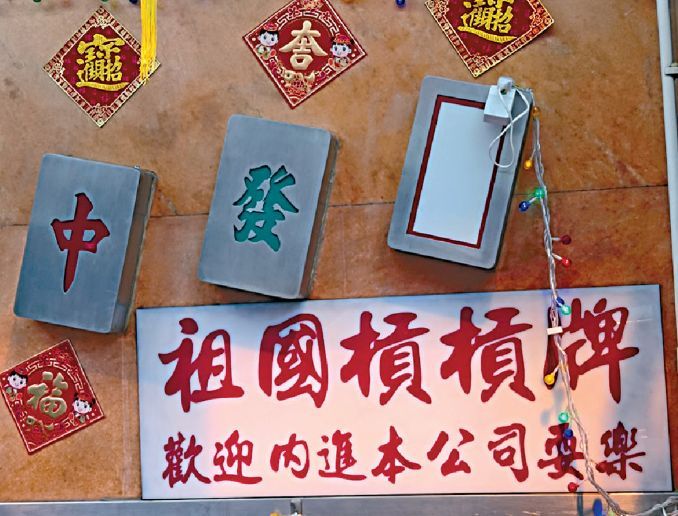 招財進寶
吉
招財進寶
中
發
福
祖國槓槓牌
歡迎內進本公司耍樂